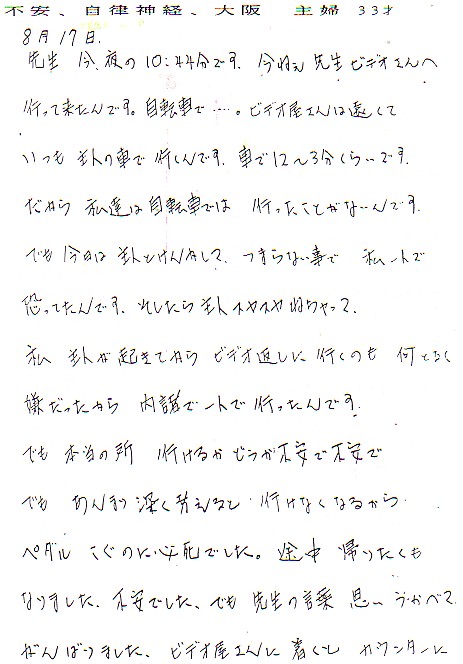 不安、自律神経、大阪 主婦 33才
8月17日.
先生 今 夜の10:44分です. 今ねぇ 先生 ビデオさんへ
行って来たんです。自転車で…。ビデオ屋さんは遠くて
いつも 主人の車で 行くんです. 車で12〜3分くらいです.
だから 私達は自転車では 行ったことがないんです.
でも 今日は 主人とけんかして、 つまらない事で 私一人で
怒ってたんです. そしたら主人 スヤスヤ ねちゃって.
私 主人が起きてから ビデオ返しに 行くのも 何となく
嫌だったから 内諸で一人で 行ったんです.
でも 本当の所 行けるか どうか 不安で不安で
でも あんまり 深く考えると 行けなくなるから
ペダル こぐのに必死でした。 途中 帰りたくも
なりました. 不安でした. でも 先生の言葉 思い うかべて
がんばりました. ビデオ屋さんに 着くと カウンターに